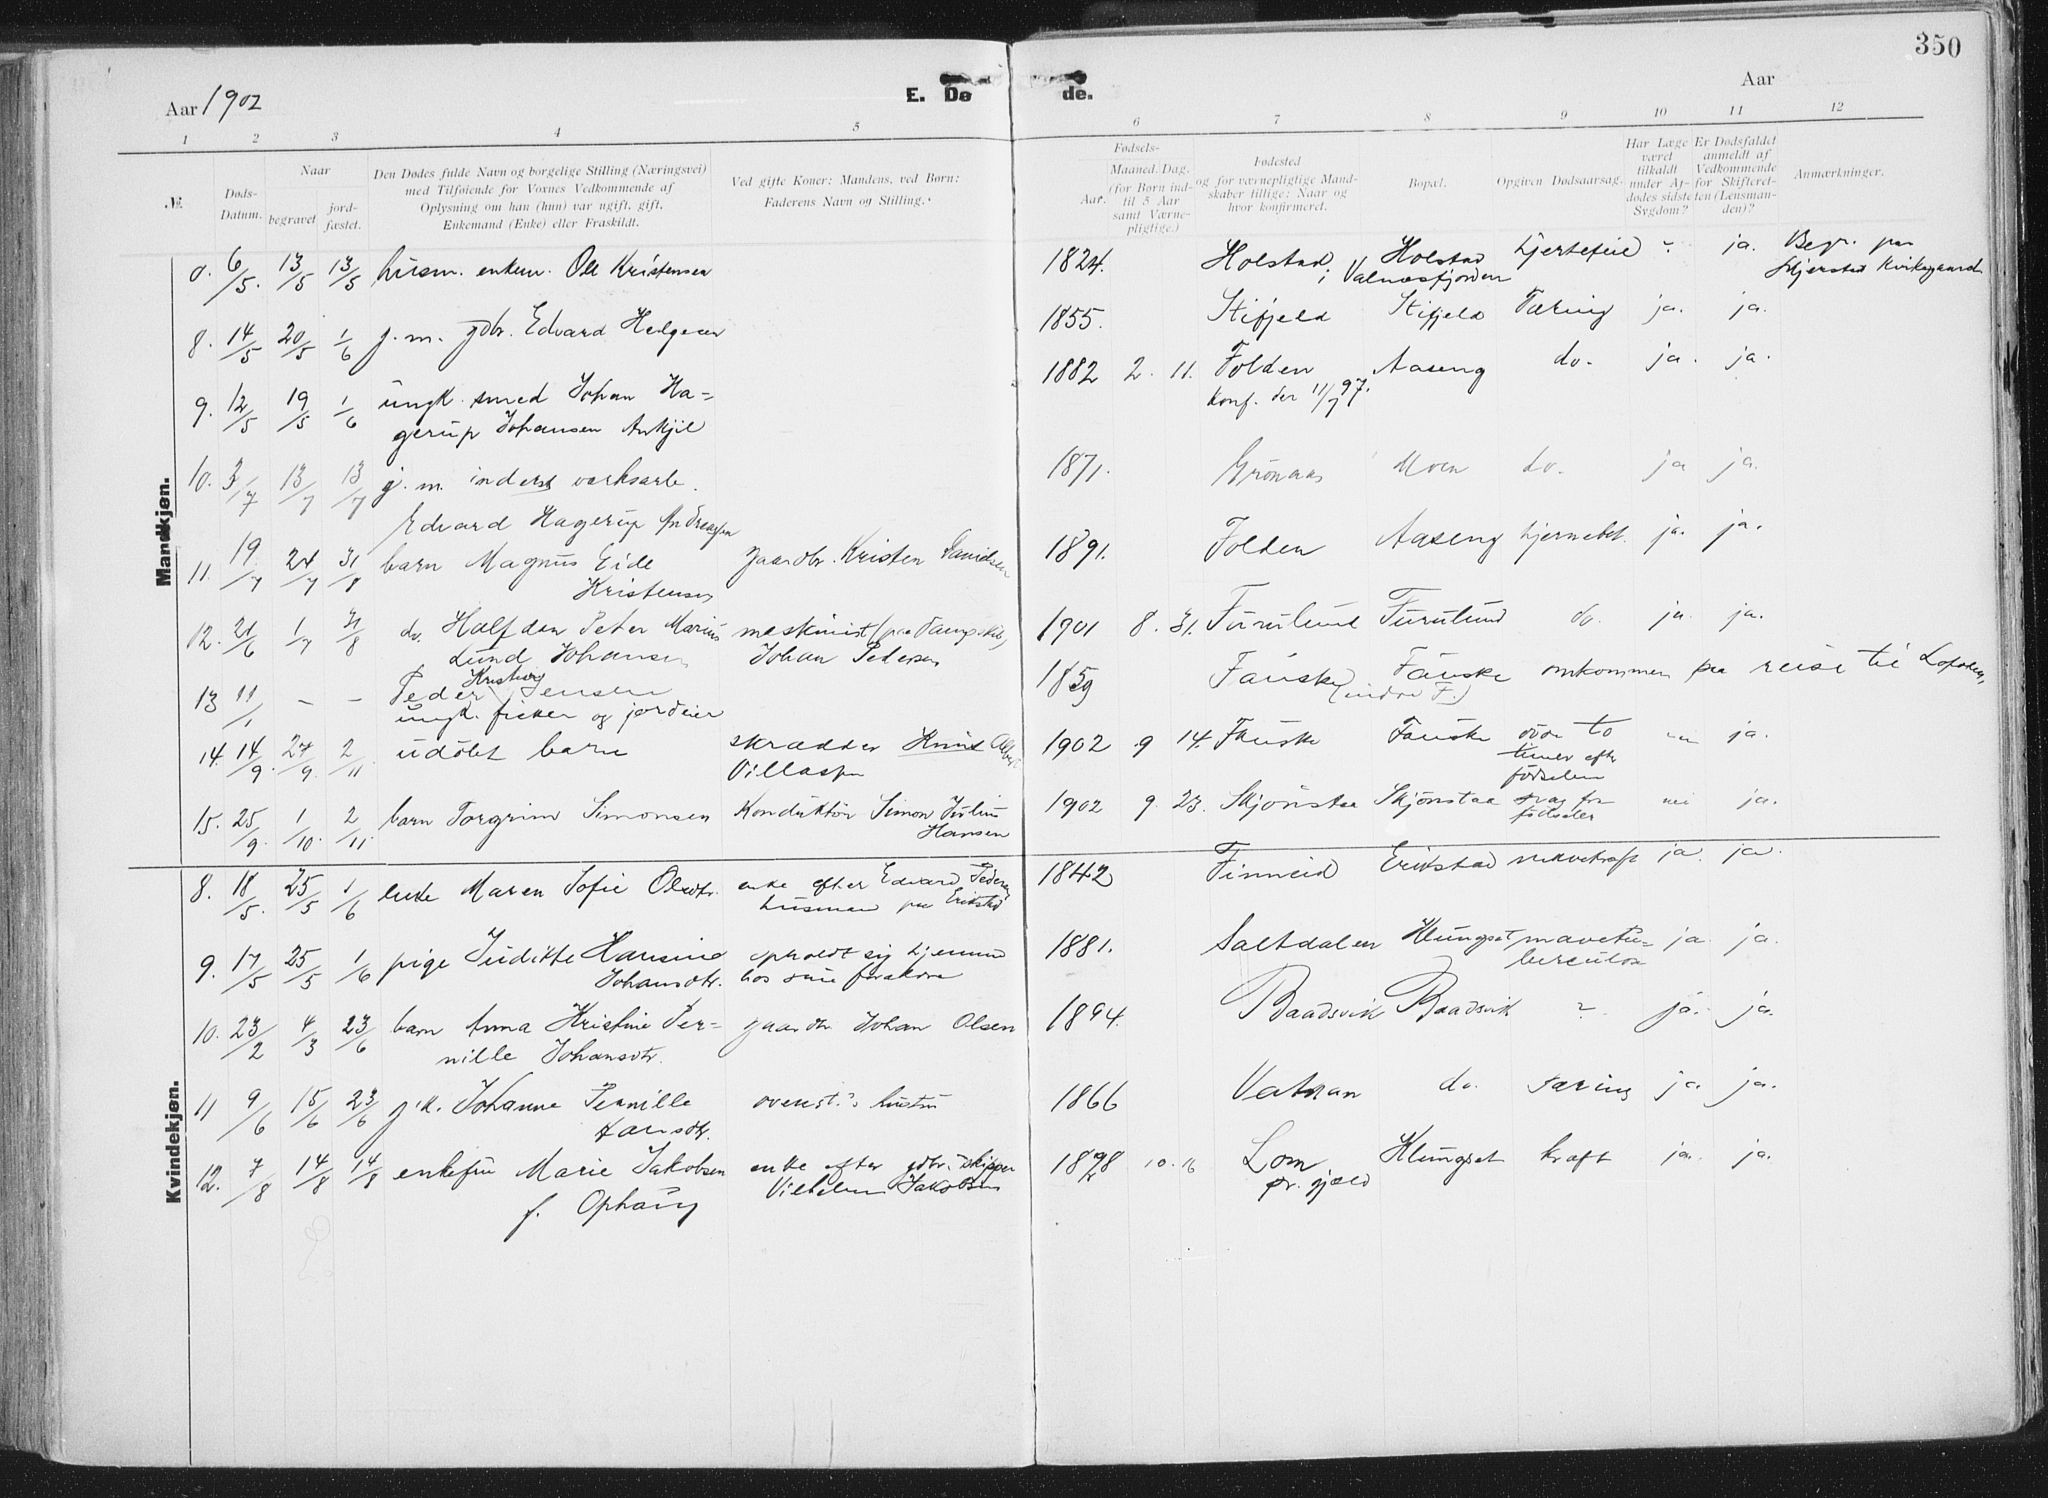 350
Aar 1902
E. Dø de.
Aar
1 2 3 4 5 6 7 8 9 10 11 12
№.
Døds-Datum.
Naar
begravet
jord-fæstet.
Den Dødes fulde Navn og borgelige Stilling (Næringsvei)
med Tilføiende for Voxnes Vedkommende af
Oplysning om han (hun) var ugift, gift,
Enkemand (Enke) eller Fraskildt.
Ved gifte Koner: Mandens, ved Børn:
Faderens Navn og Stilling.
Fødsels-
Aar.
Maaned. Dag.
(for Børn ind-
til 5 Aar
samt Værne-
pligtige.)
Fødested
og for værnepligtige Mand-
skaber tillige: Naar og
hvor konfirmeret.
Bopæl.
Opgiven Dødsaarsag.
Har Læge
været
tilkaldt
under Af-
dødes sidste
Sygdom?
Er Dødsfaldet
anmeldt af
Vedkommende
for Skifteret-
ten (Lensman-
den)?
Anmærkninger.
Mandkjøn.
6/5. 13/5 13/5 husm. enkem. Ole Kristensen 1824. Holstad i Valnæsfjorden Holstad hjertefeil ja. Begr. paa Kirkegaard
8. 14/5 20/5 1/6 g. m. gdbr. Edvard Helgesen 1855. Stifjeld Stifjeld Tæring ja. ja.
9. 12/5 19/5 1/6 ungk. smed Johan Ha-
gerup Johansen 1882 2. 11. Folden Aaseng do. ja. ja.
konf. den 11/7 97.
10. 3/7 13/7 13/7 g. m. inderst
Edvard Hagerup Andreassen 1871. Grønaas Moen do. ja ja.
11. 19/7 24/7 31/8 barn Magnus Eide
Kristensen gaardbr. Kristen Davidsen 1891. Folden Aaseng hjernebet. ja. ja.
12. 24/6 1/7 31/8 do. Halfdan Peter Marius
Lund Johansen maskinist (paa Dampskib)
Johan Pedersen 1901 8. 31. Furulund Furulund do. ja. ja.
13 11/1 - - Peder Kristian Jensen
ungk. fisker og jordeier 1859 Fauske (indre F.) Fauske omkommen paa reise til Lofoten.
14. 14/9. 27/9. 2/11. udøbt barn skrædder Knud
1902 9 14. Fauske Fauske døde to
timer efter
fødselen nei ja.
15. 25/9. 1/10. 2/11. barn Torgrim Simonsen Konduktør Simon Julius
Hansen 1902 9. 23. Skjønstaa Skjønstaa svag fra
fødselen nei ja.
Kvindekjøn.
8. 18/5. 25/5 1/6 enke Maren Sofie Olsdtr. enke efter Edvard Pedersen
husmand paa Erikstad 1842 Finneid Erikstad ja. ja.
9. 17/5 25/5 1/6 pige Juditte Hansine
Johansdtr. opholdt sig hjemme
hos sine forældre 1881. Saltdalen Klungset mavetu-
berculose ja. ja.
10. 23/2 4/3 23/6 barn Anna Kristine Per-
nille Johansdtr. gaardbr Johan Olsen 1894. Baadsvik Baadsvik ja. ja.
11 9/6 15/6 23/6 g. k. Johanne Pernille
Hansdtr. ovenst.'s hustru 1866 Vatnan do. Tæring ja. ja.
12. 7/8 14/8 14/8 enkefru Marie Jakobsen
f. Ophaug enke efter gdbr. skipper
Vilhelm Jakobsen 10. 16 Lom
pr. gjæld Klungset kræft ja. ja.